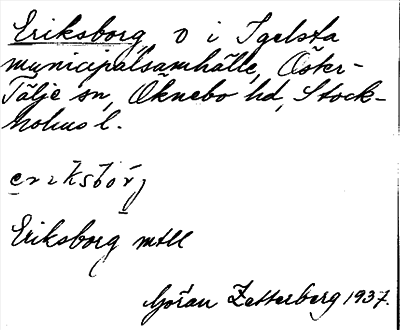 Eriksborg o i Igelsta
municipalsamhälle, Öster-
Tälje sn, Öknebo hd, Stock-
holms l.
eriksborj
Eriksborg mtll
Göran Zetterberg 1937.